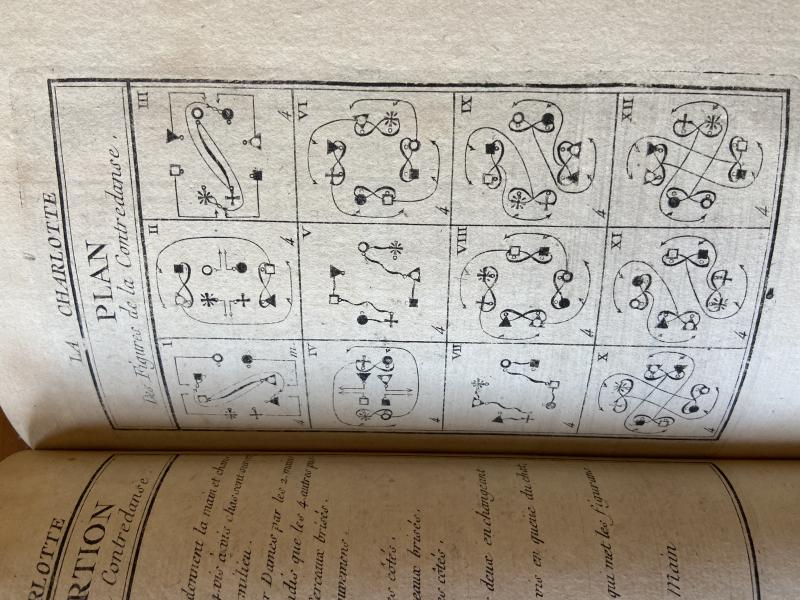 LA CHARLOTTE
PLAN
Des Figures de la Contredanse.
I
m.
4
II
4
III
4
IV
4
V
4
VI
4
VII
4
VIII
4
IX
4
X
4
XI
4
XII
4
RLOTTE
RTION
Contredanse.
main et
milieu.
Dames par les 2.
dis que les 4. autres
erceaux brisés.
s côtés.
ceaux brisés.
s côtés.
deux en changeant
vis en queue du chat.
qui met les figurans
Main